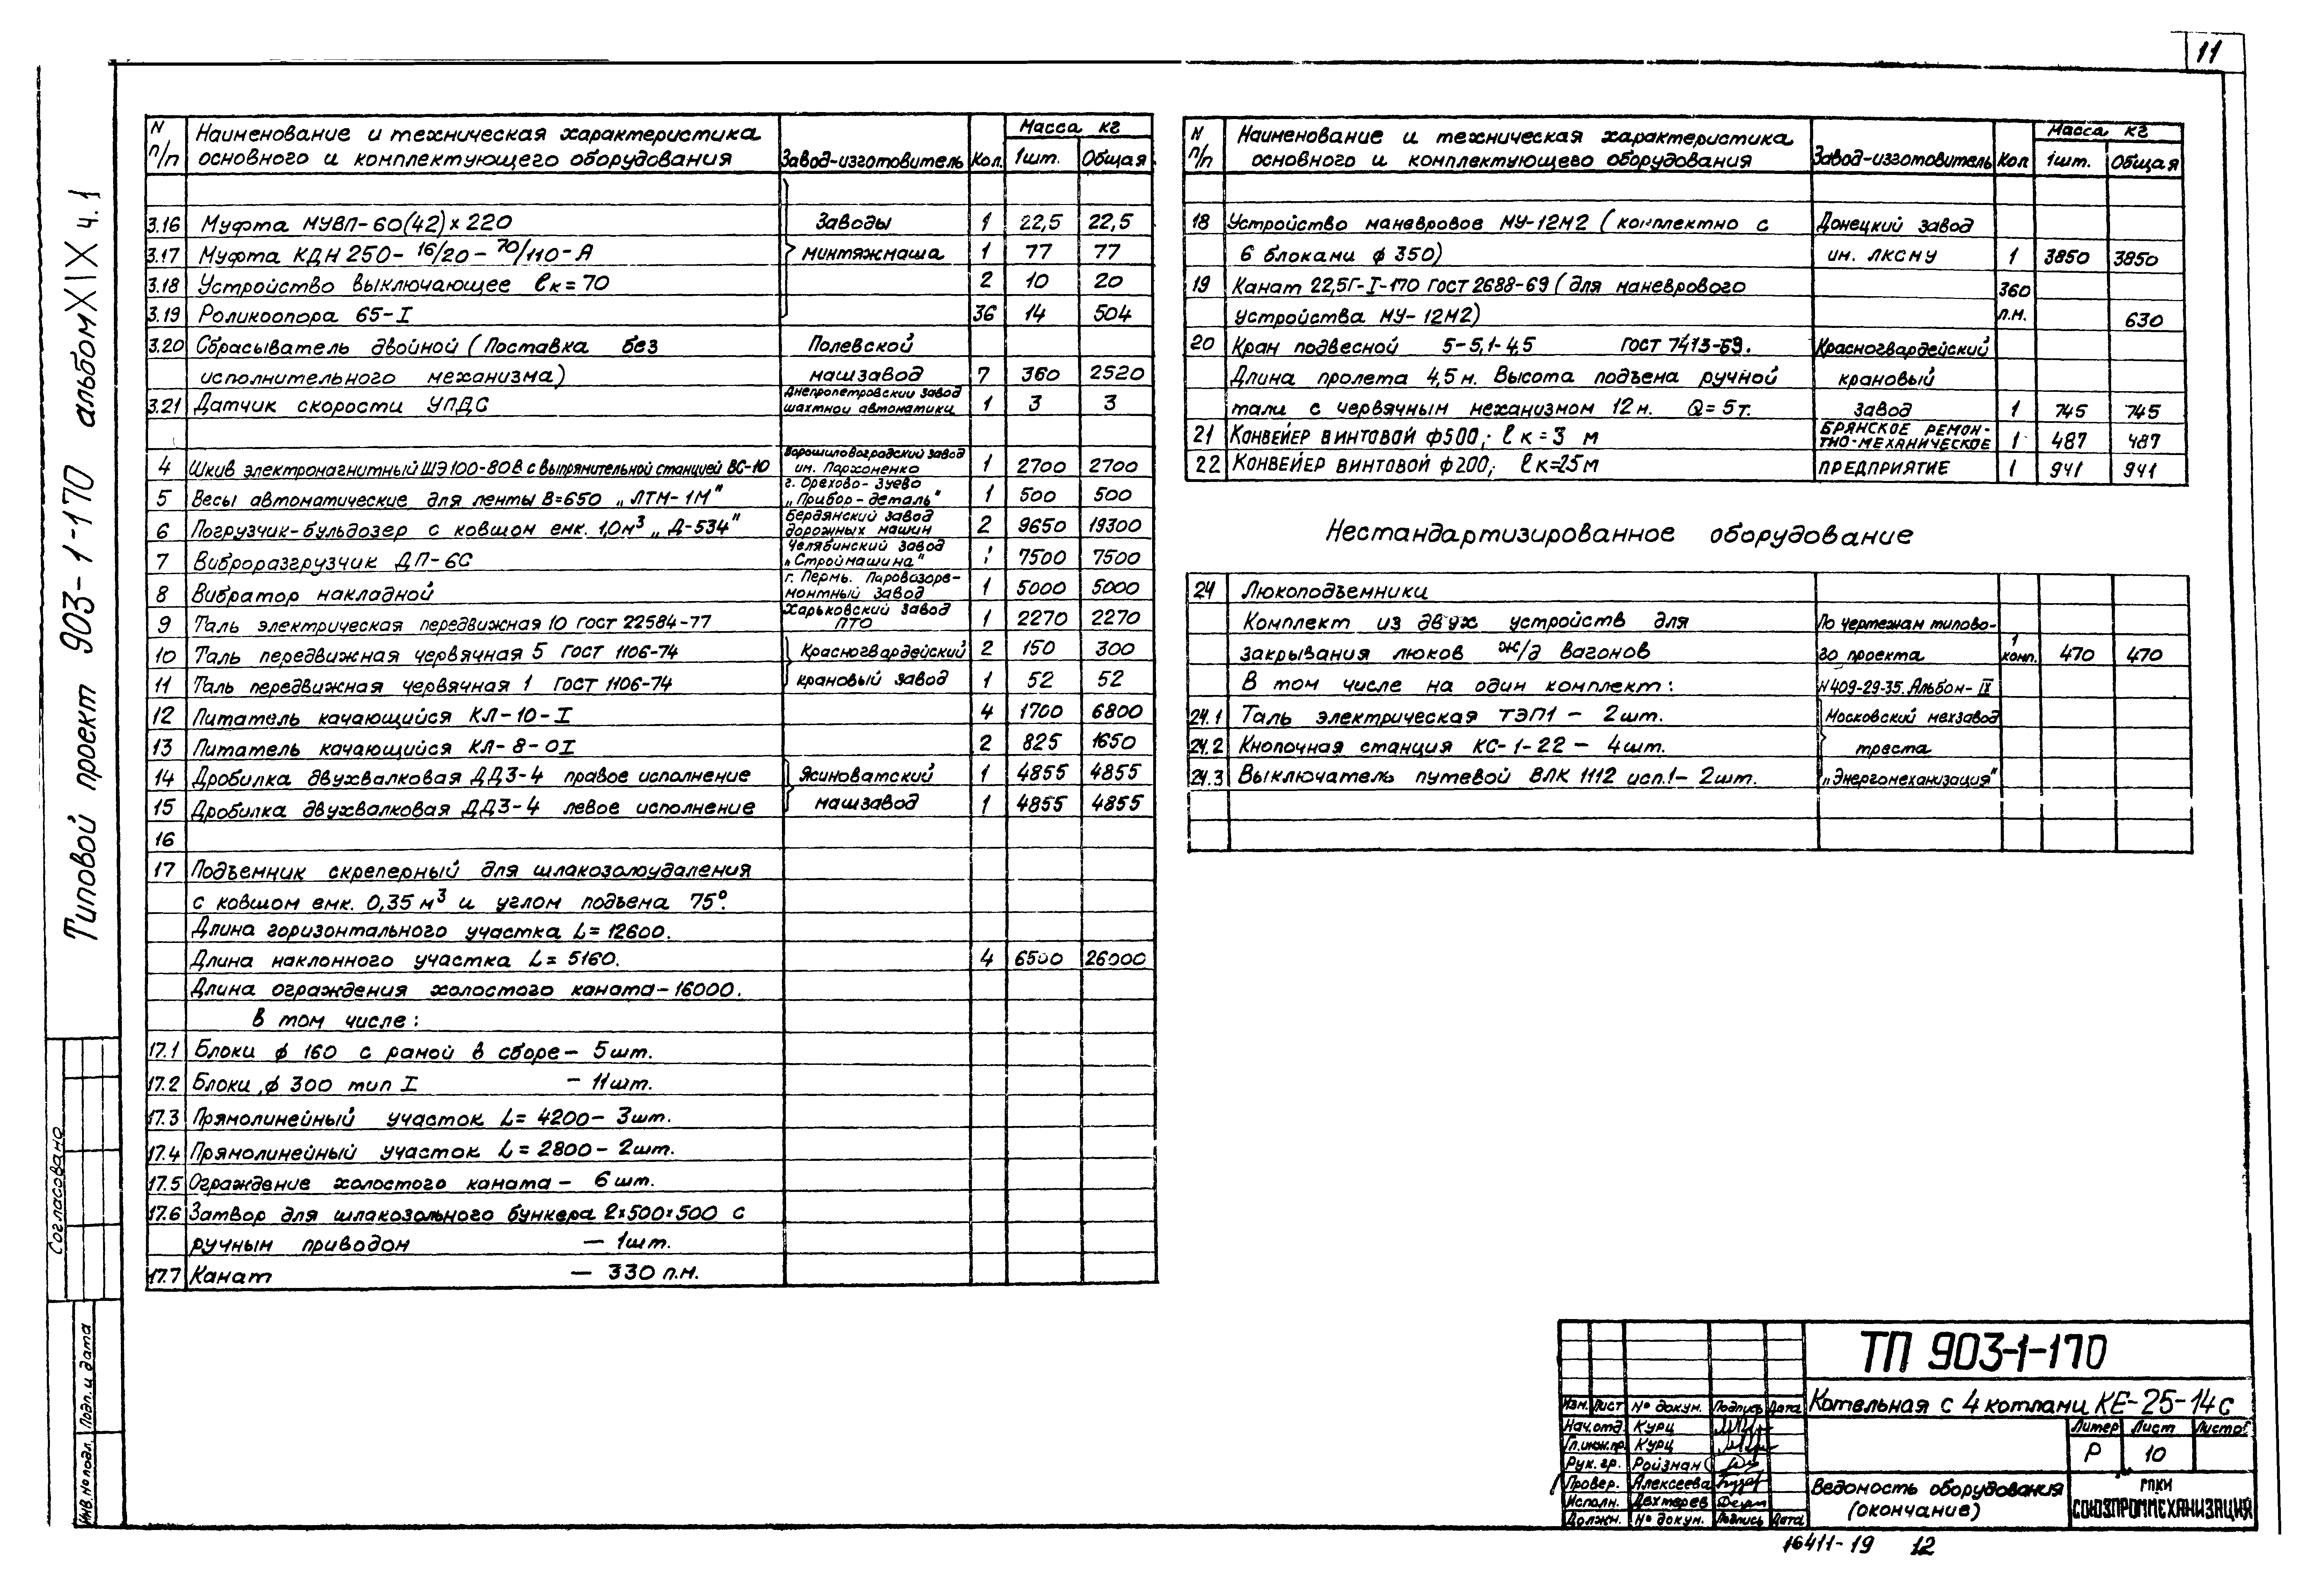 11
Типовой проект 903-1-170 альбом XIX ч.1
N п/п Наименование и техническая характеристика основного и комплектующего оборудования Завод-изготовитель Кол. Масса кг 1шт. Общая
3.16 Муфта МУВП-60(42)х220 Заводы 1 22,5 22,5
3.17 Муфта КДН 250-16/20-70/110-А минтяжмаша 1 77 77
3.18 Устройство выключающее ℓк=70 2 10 20
3.19 Роликоопора 65-I 36 14 504
3.20 Сбрасыватель двойной (Поставка без Полевской
исполнительного механизма) машзавод 7 360 2520
3.21 Датчик скорости УПДС Днепропетровский завод шахтной автоматики 1 3 3
4 Шкив электромагнитный ШЭ100-80В с выпрямительной станцией ВС-10 Ворошиловоградский завод им. Пархоменко 1 2700 2700
5 Весы автоматические для ленты В=650 „ЛТМ-1М" г. Орехово-Зуево „Прибор-деталь" 1 500 500
6 Погрузчик-бульдозер с ковшом емк. 1,0м³ „Д-534" Бердянский завод дорожных машин 2 9650 19300
7 Виброразгрузчик ДП-6С Челябинский завод „Строймашина" 1 7500 7500
8 Вибратор накладной г. Пермь. Паровозоре-монтный завод 1 5000 5000
9 Таль электрическая передвижная 10 ГОСТ 22584-77 Харьковский завод ПТО 1 2270 2270
10 Таль передвижная червячная 5 ГОСТ 1106-74 Красногвардейский 2 150 300
11 Таль передвижная червячная 1 ГОСТ 1106-74 крановый завод 1 52 52
12 Питатель качающийся КЛ-10-I 4 1700 6800
13 Питатель качающийся КЛ-8-0I 2 825 1650
14 Дробилка двухвалковая ДДЗ-4 правое исполнение Ясиноватский 1 4855 4855
15 Дробилка двухвалковая ДДЗ-4 левое исполнение машзавод 1 4855 4855
16
17 Подъемник скреперный для шлакозолоудаления
с ковшом емк. 0,35м³ и углом подъема 75°.
Длина горизонтального участка L=12600.
Длина наклонного участка L=5160. 4 6500 26000
Длина ограждения холостого каната-16000.
в том числе:
17.1 Блоки ϕ 160 с рамой в сборе - 5шт.
17.2 Блоки ϕ 300 тип I - 11шт.
17.3 Прямолинейный участок L=4200 - 3шт.
17.4 Прямолинейный участок L=2800 - 2шт.
17.5 Ограждение холостого каната - 6шт.
17.6 Затвор для шлакозольного бункера 2х500х500 с
ручным приводом — 1шт.
17.7 Канат — 330 п.м.
N п/п Наименование и техническая характеристика основного и комплектующего оборудования Завод-изготовитель Кол Масса кг 1шт. Общая
18 Устройство маневровое МУ-12М2 (комплектно с Донецкий завод
6 блоками ϕ 350) им. ЛКСМУ 1 3850 3850
19 Канат 22,5Г-I-170 ГОСТ 2688-69 (для маневрового 360
устройства МУ-12М2) п.м. 630
20 Кран подвесной 5-5,1-4,5 ГОСТ 7413-69. Красногвардейский
Длина пролета 4,5м. Высота подъема ручной крановый
тали с червячным механизмом 12м. Q=5т. завод 1 745 745
21 КОНВЕЙЕР ВИНТОВОЙ ϕ500; ℓк=3 м БРЯНСКОЕ РЕМОН-ТНО-МЕХАНИЧЕСКОЕ 1 487 487
22 КОНВЕЙЕР ВИНТОВОЙ ϕ200; ℓк=25м ПРЕДПРИЯТИЕ 1 941 941
Нестандартизированное оборудование
24 Люкоподъемники
Комплект из двух устройств для По чертежам типово-
закрывания люков ж/д вагонов го проекта 1 комп. 470 470
В том числе на один комплект: N409-29-35. Альбом-IX
24.1 Таль электрическая ТЭП1 - 2шт. Московский мехзавод
24.2 Кнопочная станция КС-1-22 - 4шт. треста
24.3 Выключатель путевой ВЛК 1112 исп.1 - 2шт. „Энергомеханизация"
Согласовано
Инв. № подл. Подп. и дата
ТП 903-1-170
Котельная с 4 котлами КЕ-25-14с
Изм. Лист № докум. Подпись Дата
Нач.отд. Курц
Гл.инж.пр. Курц
Рук. гр. Ройзман
Провер. Алексеева
Исполн. Дехтерев
Должн. № докум. Подпись Дата
Литер Лист Листов
Р 10
Ведомость оборудования (окончание)
ГПКИ
СОЮЗПРОММЕХАНИЗАЦИЯ
16411-19 12